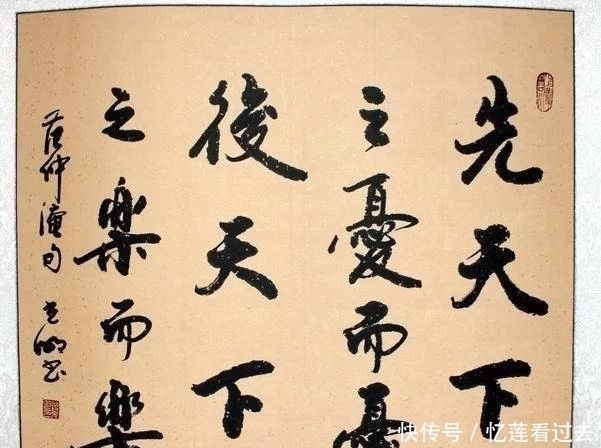 先天下
之憂而憂
後天下
之樂而樂
范仲淹句
快传号／忆莲看过去